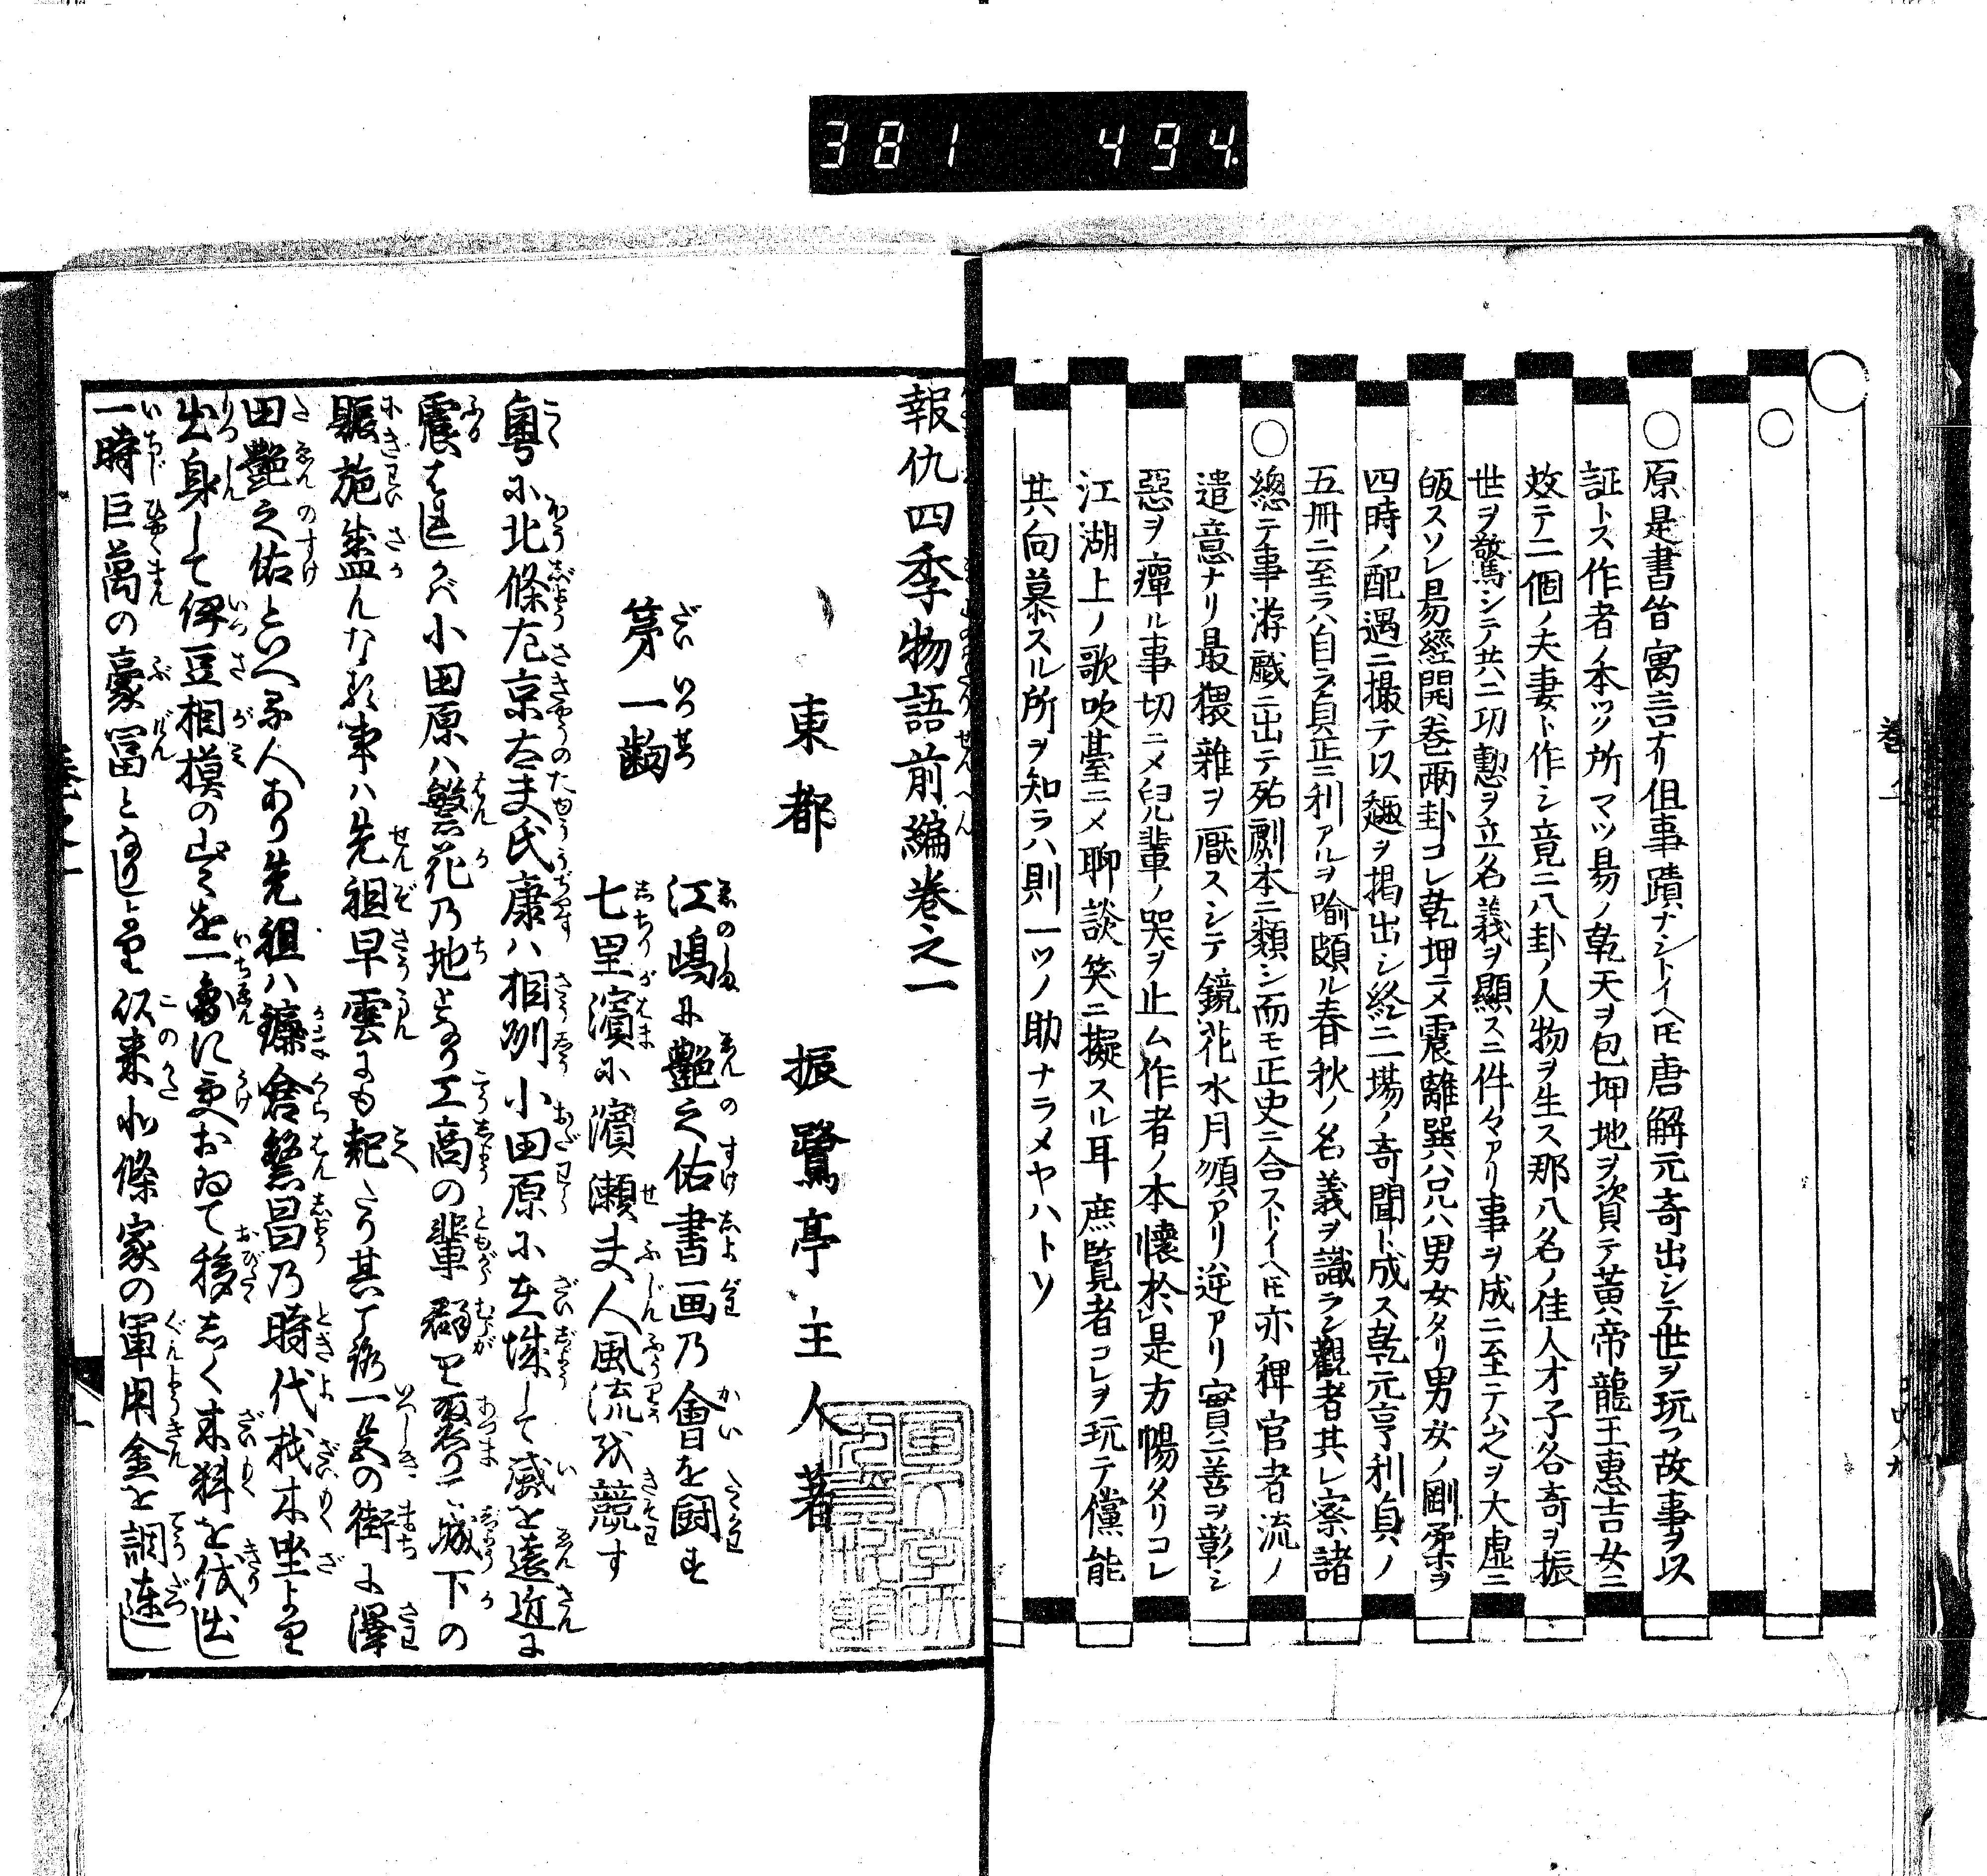 381 494
○
○原是書皆寓言有リ但事蹟ナシトイヘ𪜈唐解元奇出シテ世ヲ玩フ故事ヲ以
証トス作者ノ本ツク所マツ易ノ乾天ヲ包坤地ヲ資テ黄帝龍王惠吉女ニ
效テ二個ノ夫妻ト作シ竟ニ八卦ノ人物ヲ生ス那八名ノ佳人才子各奇ヲ振
世ヲ驚シテ共ニ功勲ヲ立名義ヲ顯スニ件々アリ事ヲ成ニ至テハ之ヲ大虚ニ
皈スソレ易經開巻兩卦コレ乾坤ニメ震離巽ハ兄ハ男女タリ男女ノ剛柔ヲ
四時ノ配遇ニ撮テ以趣ヲ掲出シ終ニ一場ノ奇聞ト成ス乾元亨利貞ノ
五冊ニ至ラハ自ラ貞正ニ利アルヲ喩頗ル春秋ノ名義ヲ識ラン觀者其レ察諸
○總テ事游戲ニ出テ殆劇本ニ類シ而モ正史ニ合ストイヘ𪜈亦稗官者流ノ
遣意ナリ最猥雜ヲ厭スシテ鏡花水月順アリ逆アリ實ニ善ヲ彰シ
惡ヲ癉ル事切ニメ兒輩ノ哭ヲ止ム作者ノ本懷於是方暢タリコレ
江湖上ノ歌吹臺ニメ聊談笑ニ擬スル耳庶覧者コレヲ玩テ儻能
其向慕スル所ヲ知ラハ則一ツノ助ナラメヤハトソ
報仇四季物語前編巻之一
東都 振鷺亭主人著
第一齣
江嶋に艶之佑書画乃會を闘す
七里濱に濱瀬夫人風流を競す
粤に北條左京太夫氏康ハ相州小田原に在城して威を遠近に
震ひしかバ小田原ハ繁花乃地となり工商の輩群り聚り城下の
賑施盛んなる事ハ先祖早雲にも超たり其頃一色の街に澤
田艶之佑といへる人あり先祖ハ鎌倉繁昌乃時代材木坐より
出身して伊豆相摸の山々を一圓に受おゐて移しく木料を伐出し
一時巨萬の豪冨となりしより以来北條家の軍用金を調達し